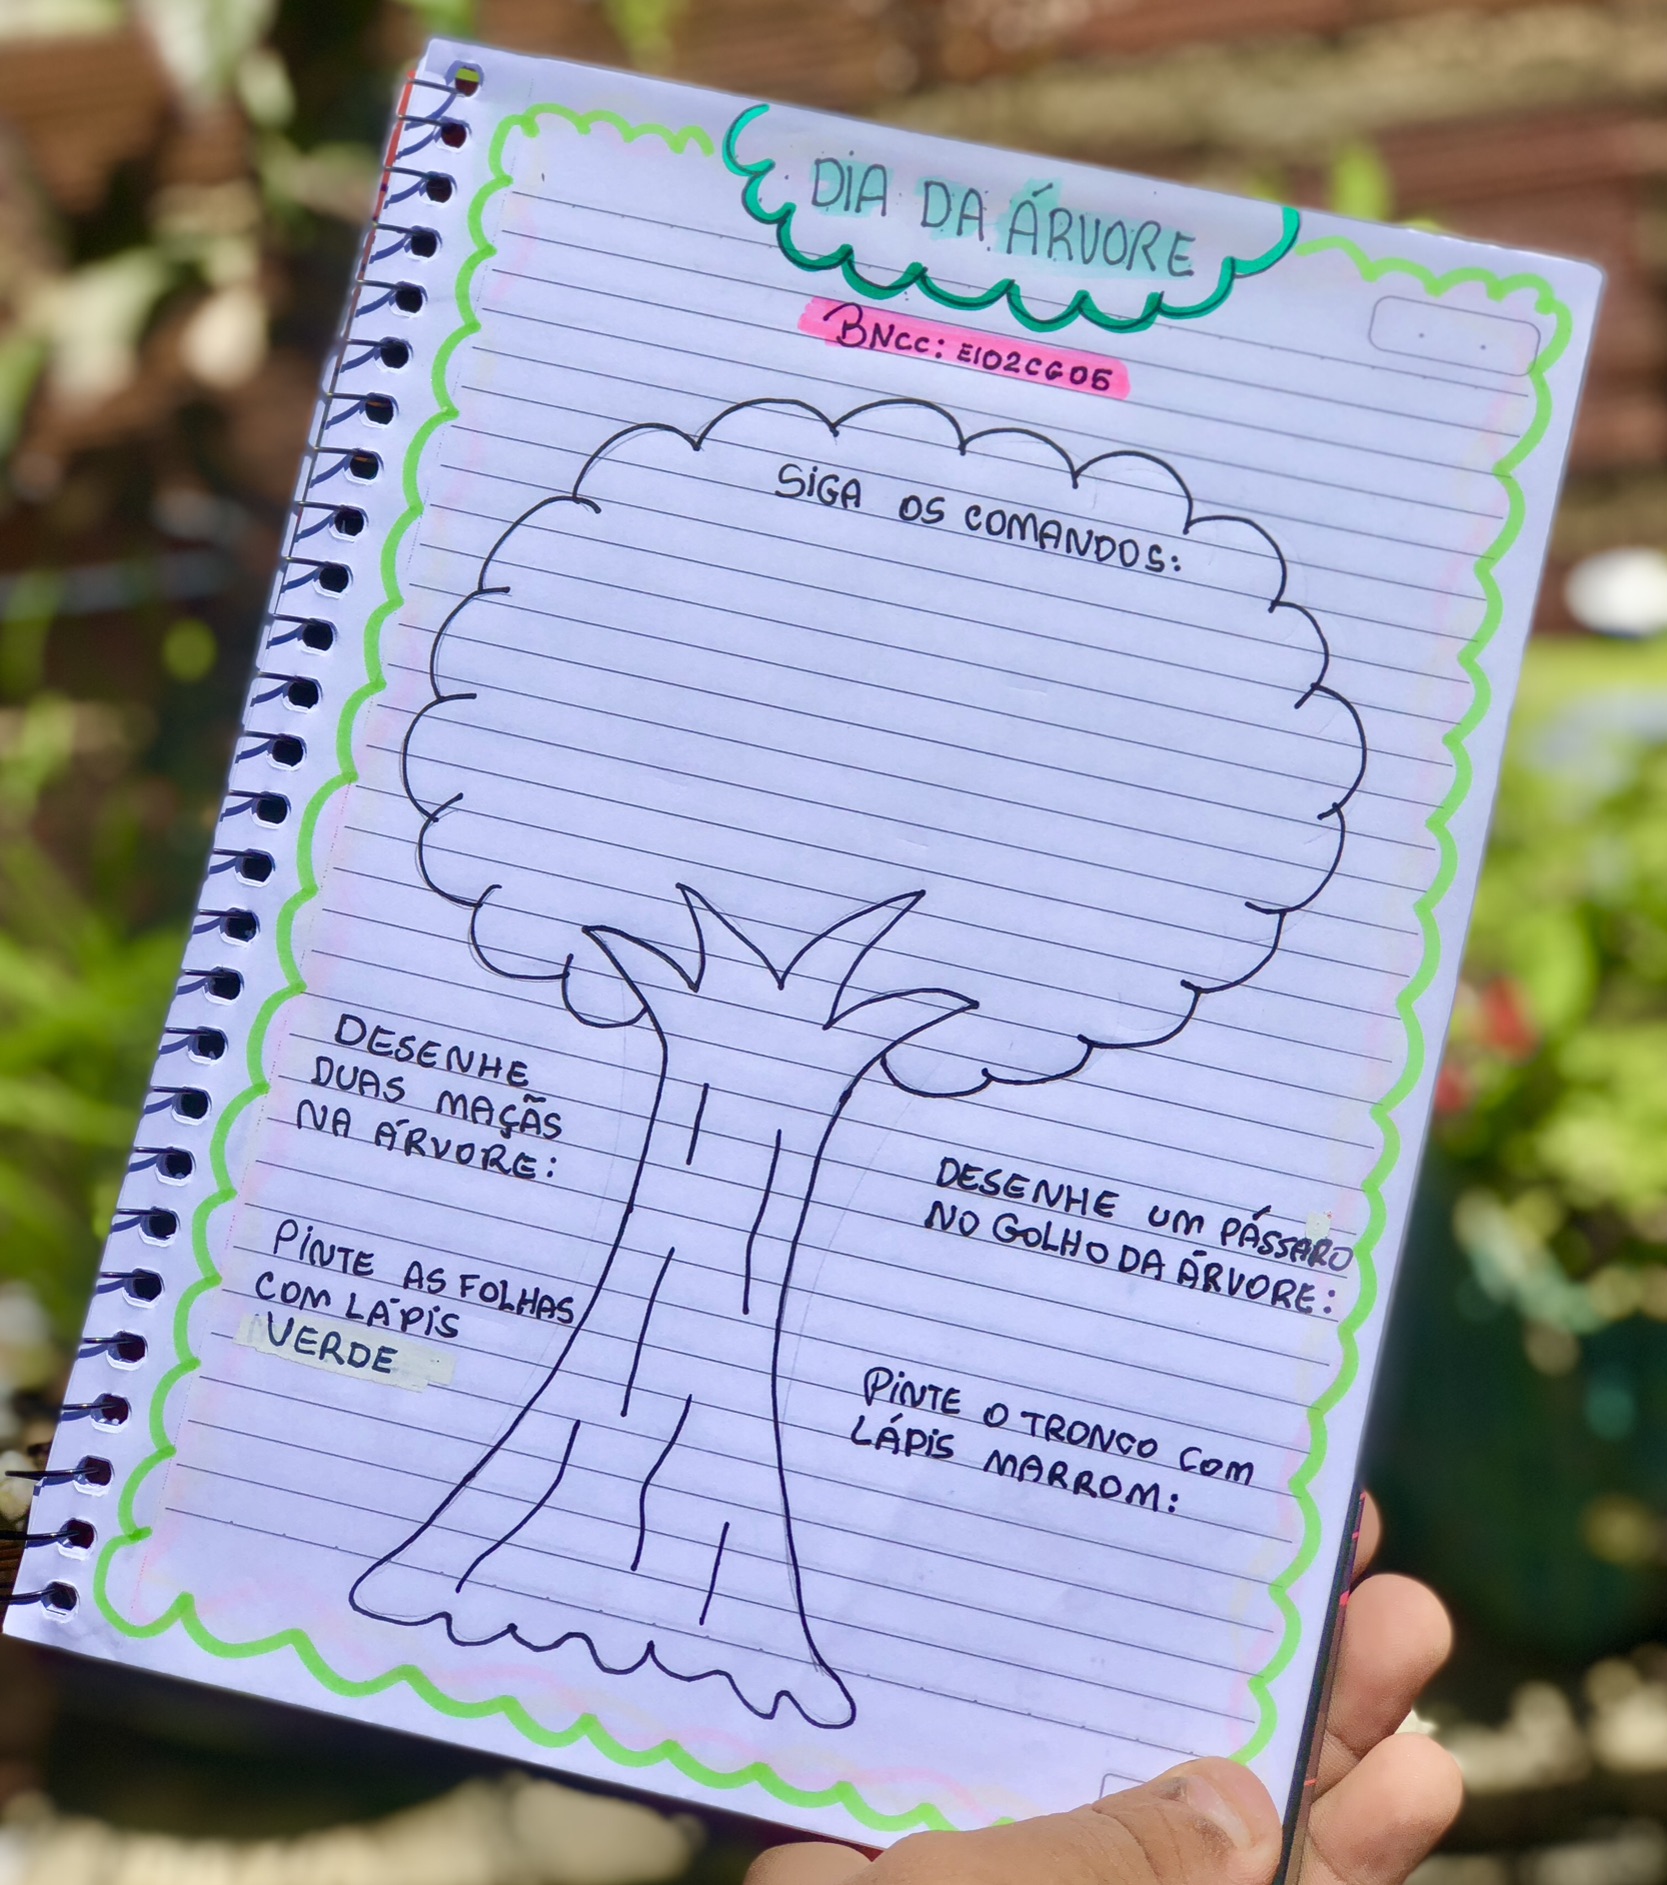 DIA DA ÁRVORE
BNCC: EI02CG05
SIGA OS COMANDOS:
DESENHE
DUAS MAÇÃS
NA ÁRVORE:
PINTE AS FOLHAS
COM LÁPIS
VERDE
DESENHE UM PÁSSARO
NO GOLHO DA ÁRVORE:
PINTE O TRONCO COM
LÁPIS MARROM: